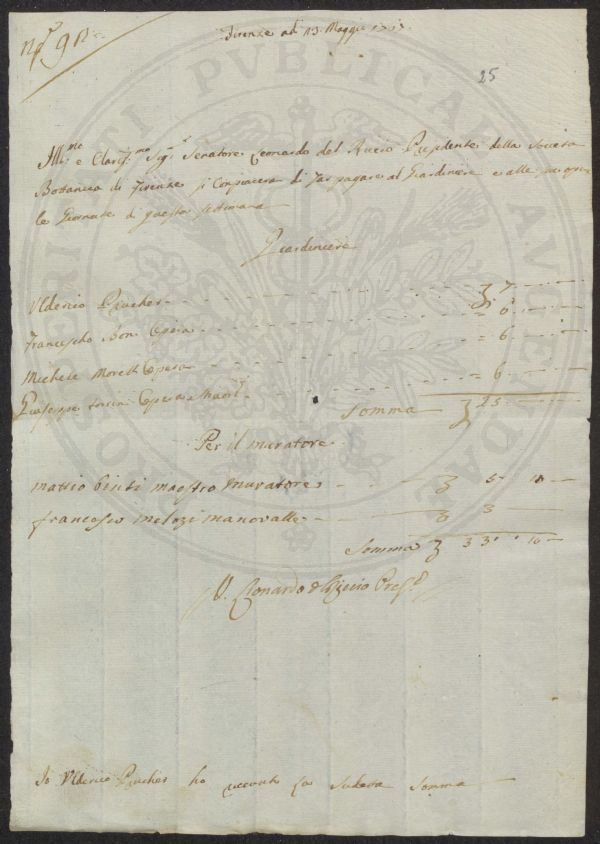 Firenze ad 13 Maggio
25
Ill:mo e Clariss:mo Sig:r Senatore Leonardo del Riccio Presidente della Società
Bottanica di Firenze si Conpiacera di far pagare al Giardiniere e alle opere
le Giornate di questa settimana
Giardiniere
Ulderico Prucher 7
Francescho Boni Opera = 6
Michele Moretti Opera = 6
Giuseppe Opera = 6
Somma 25
Per il muratore
mattio maestro muratore 5 10
francesco melozi manovalle 3
Somma 33 10
Leonardo del Riccio Pres:e
Io Ulderico Prucher ho la sudetta somma